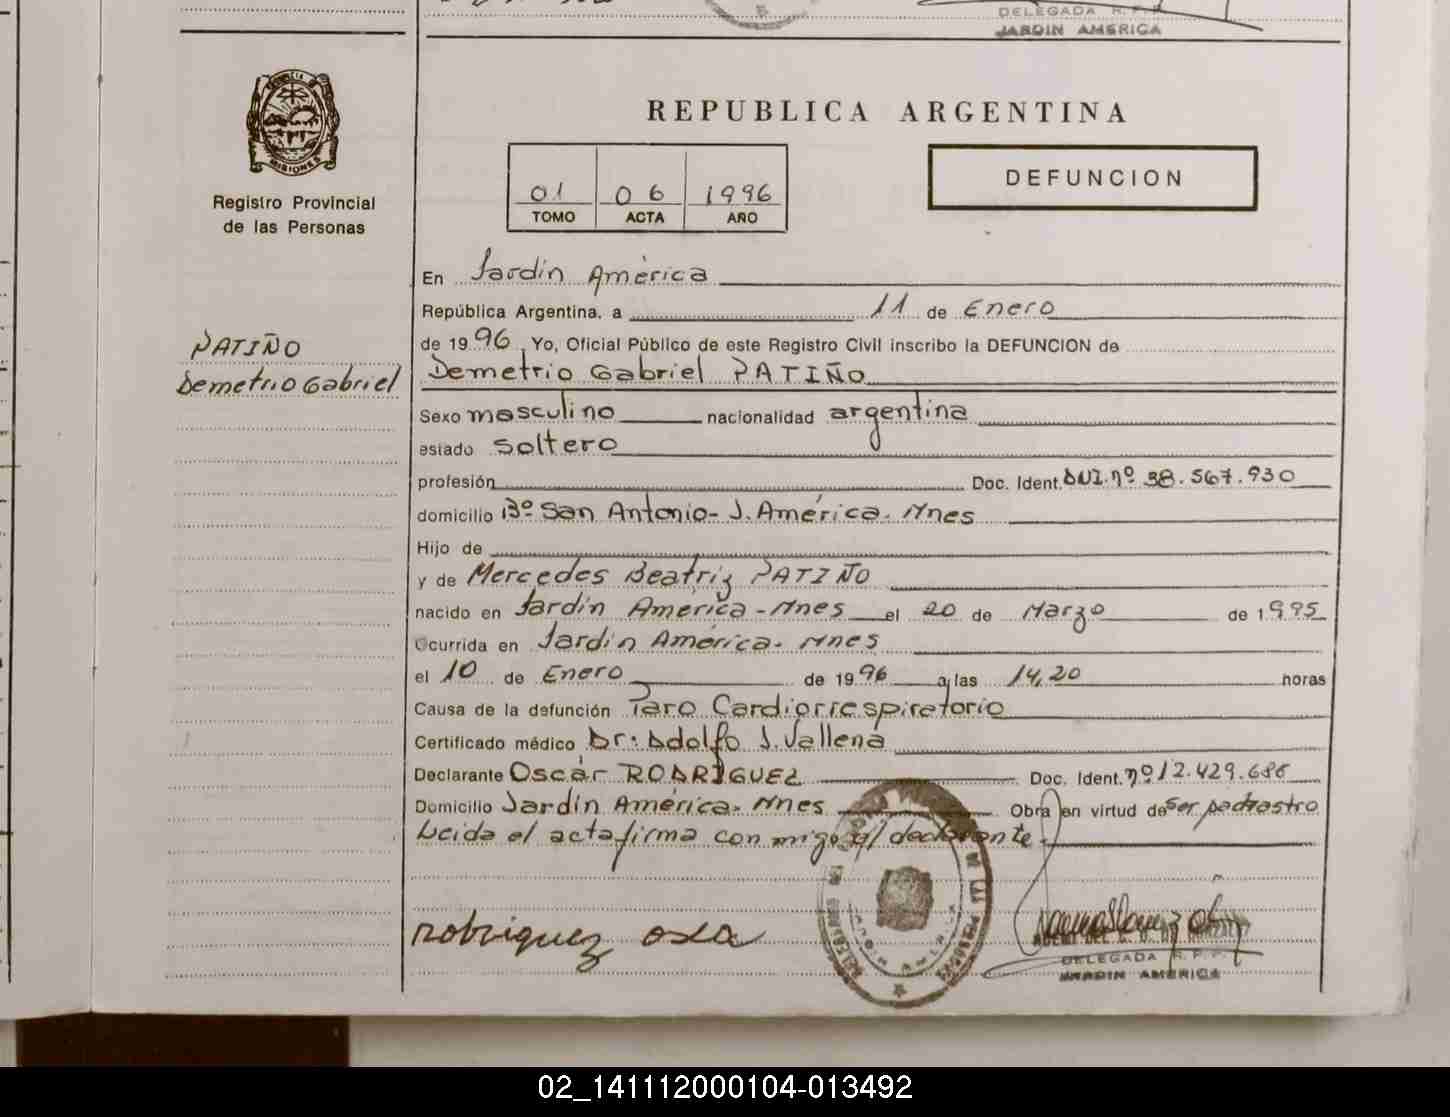 DELEGADA R. P. P.
JARDIN AMERICA
PROVINCIA DE
MISIONES
Registro Provincial
de las Personas
REPUBLICA ARGENTINA
01 06 1996
TOMO ACTA AÑO
DEFUNCION
PATIÑO
Demetrio Gabriel
En Jardín América
República Argentina, a 11 de Enero
de 1996 Yo, Oficial Público de este Registro Civil inscribo la DEFUNCION de
Demetrio Gabriel PATIÑO
Sexo masculino nacionalidad argentina
estado soltero
profesión Doc. Ident. DNI. nº 38.567.930
domicilio Bº San Antonio - J. América. Mnes
Hijo de
y de Mercedes Beatriz PATIÑO
nacido en Jardín América - Mnes el 20 de Marzo de 1995
Ocurrida en Jardín América. Mnes
el 10 de Enero de 1996 a las 14,20 horas
Causa de la defunción Paro Cardiorrespiratorio
Certificado médico Dr. Adolfo J. Vallena
Declarante Oscar RODRIGUEZ Doc. Ident. nº 12.429.686
Domicilio Jardín América. Mnes Obra en virtud de ser padrastro
Leida el acta firma con migo el declarante.
rodriguez osca
JARDIN AMERICA
DELEGADA R. P. P.
JARDIN AMERICA
02_141112000104-013492